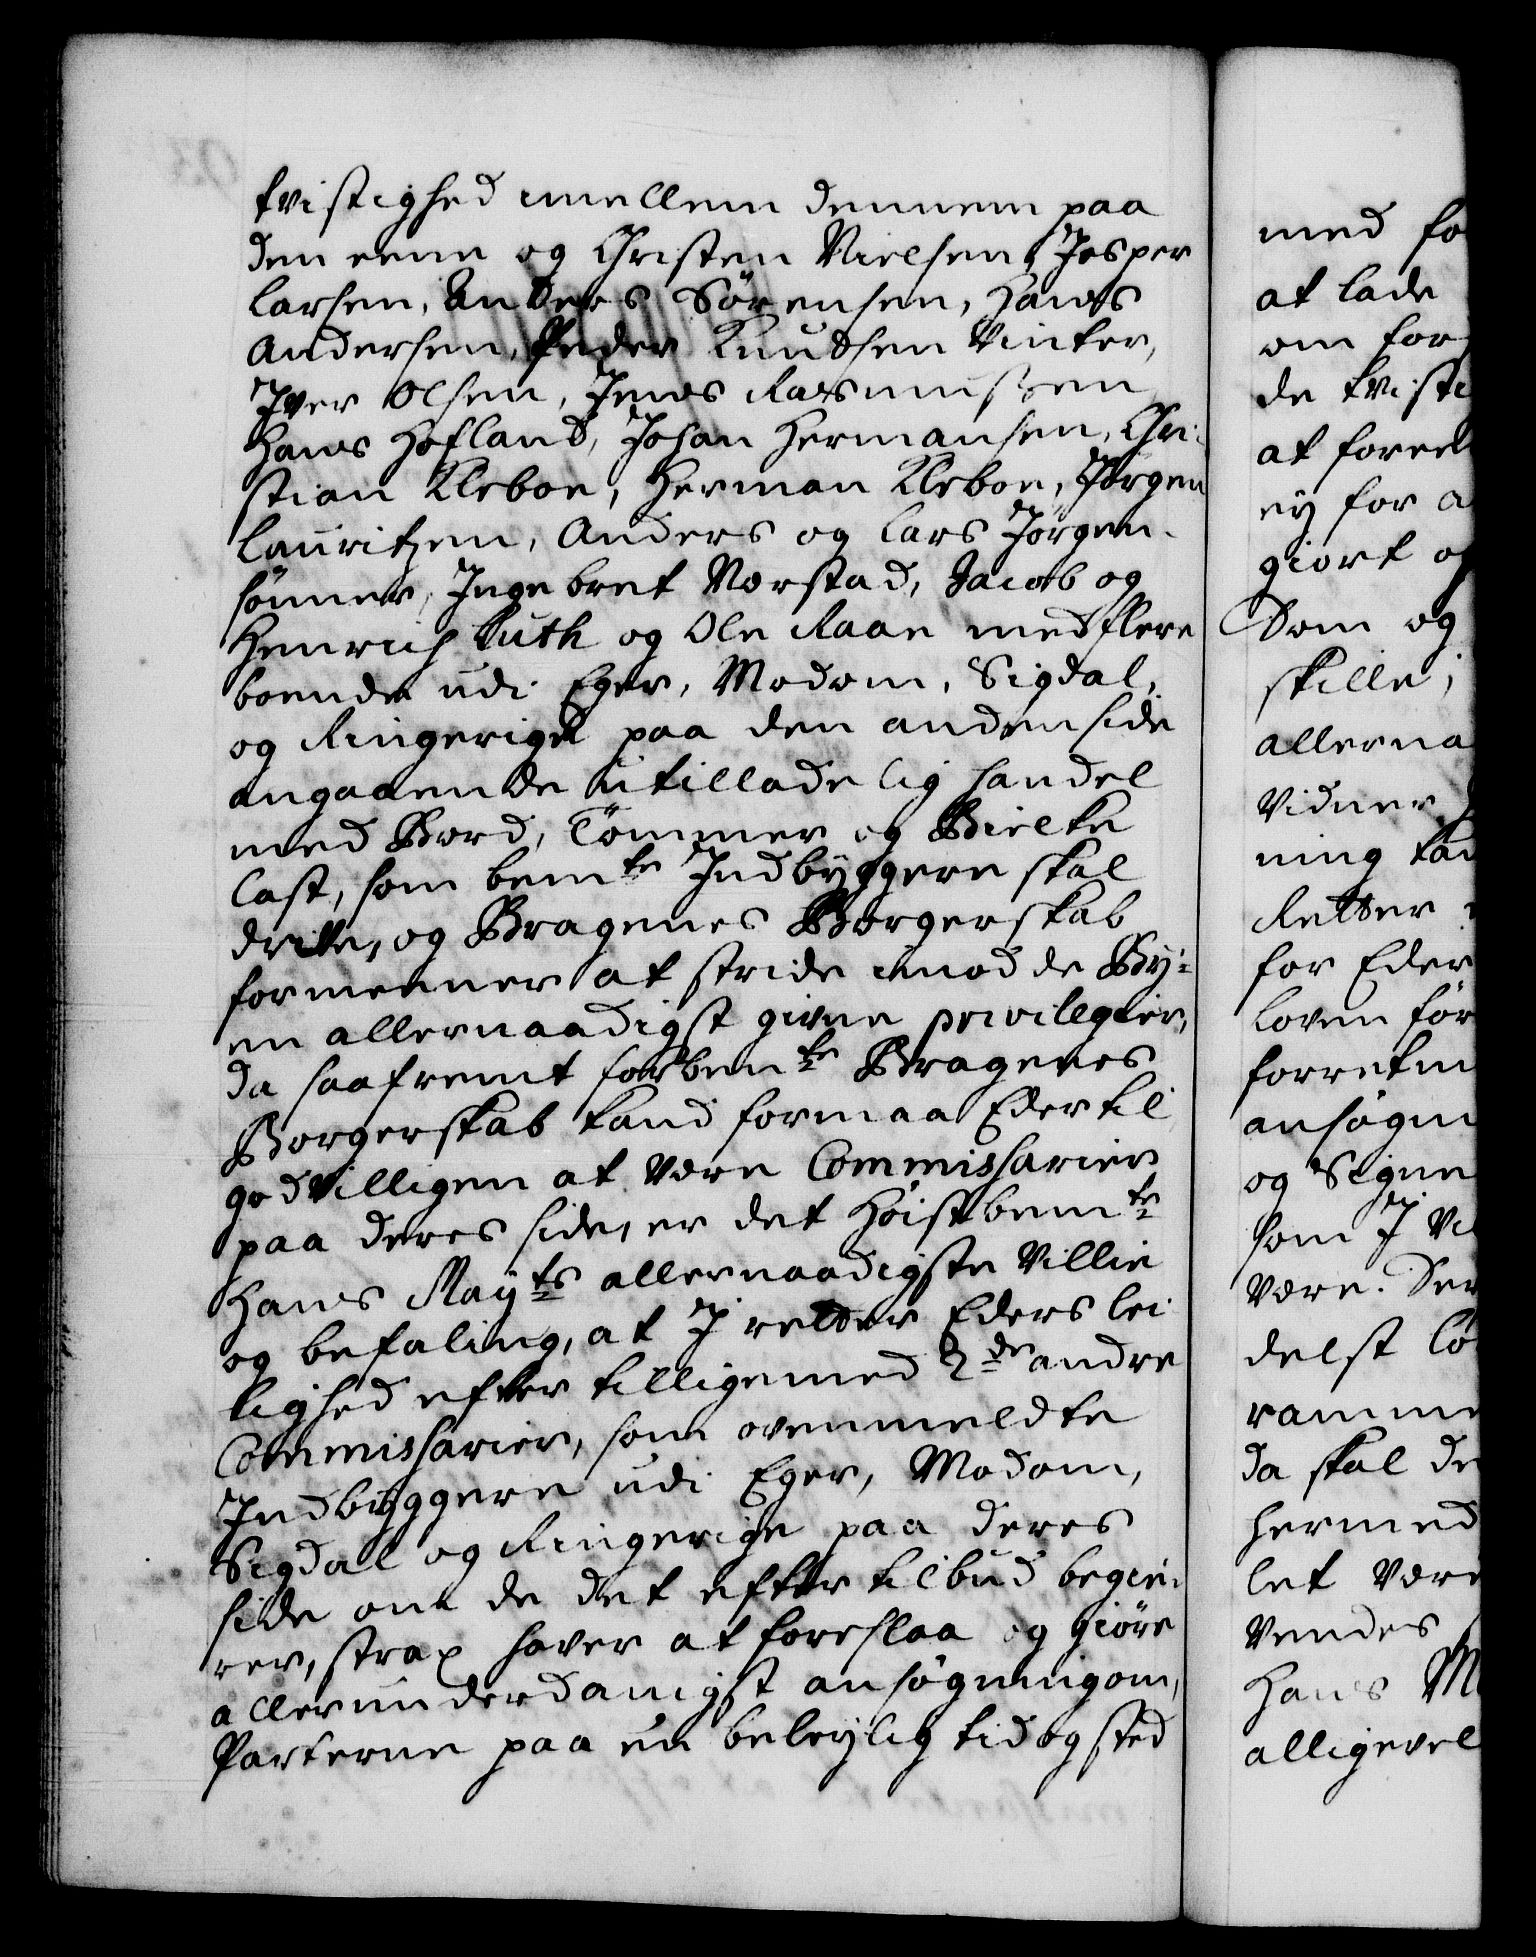 tvistighed imellem dennem paa
den eene og Christen Nielsen, Jesper
Larsen, Anders Sörensen, Hans
Andersen, Peder Knudsen Vinter,
Iver Olsen, Jens Rasmussen
Hans Hofland, Johan Hermansen, Chri-
stian Kleboe, Herman Kleboe, Jörgen
Lauritzen, Anders og Lars Jörgen-
sönner, Ingebret Vorstad, Jacob og
Henrich Luth og Ole Raae med flere
boende udi Eger, Modom, Sigdal,
og Ringerige paa den anden side
angaaende utilladelig handel
med Bord, Tömmer og Bielke
Last, som bemte Indbyggere skal
drive, og Bragenes Borgerskab
formeener at stride imod de By-
en allernaadigst givne privilegier,
da saafremt forbemte Bragenes
Borgerskab kand formaa Eder til
godvilligen at være Commissarier
paa deres side, er det Höistbemte
Hans Mayts allernaadigste Villie
og befaling, at J retter Eders lei
lighed efter tilligemed 2de andre
Commissarier, som ovenmeldte
Indbyggere udi Eger, Modom,
Sigdal og Ringerige paa deres
side om de det efter tilbud begie-
rer, strax haver at foreslaa og giöre
allerunderdanigst ansögning om,
Parterne paa en beleylig tid og sted
med fo
at lade
om for
de tvisti
at foreel
ey for a
giort og
Som og
skille,
allerna
Vidner
ning
Retter
for Eder
Loven för
forretni
ansögni
og Signe
som J Vi
være. Der
delst lö
ramme
da skal de
hermed
let være
Vendes
Hans M
alligevel